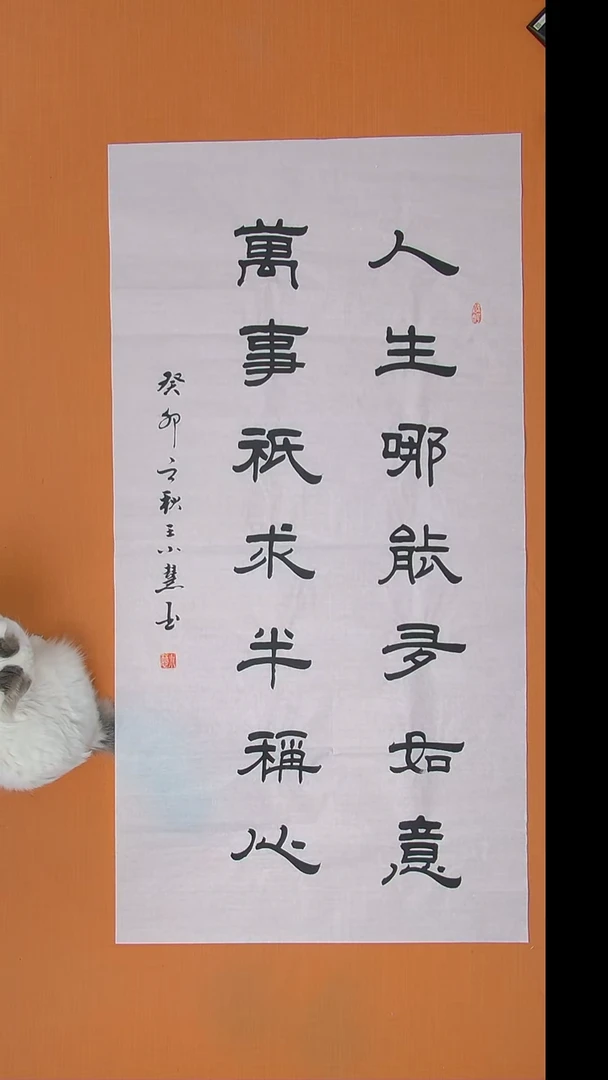 人生哪能多如意
萬事祇求半稱心
癸卯之秋王小慧书